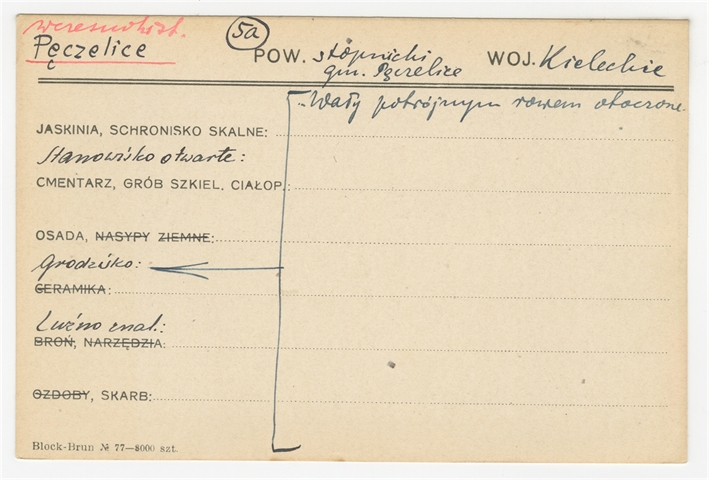 wczesnohist.
Pęczelice
5a
POW. stopnicki
gm. Pęczelice
WOJ. Kieleckie
Wały potrójnym rowem otoczone.
JASKINIA, SCHRONISKO SKALNE:
Stanowisko otwarte:
CMENTARZ, GRÓB SZKIEL. CIAŁOP.:
OSADA, NASYPY ZIEMNE:
Grodzisko:
CERAMIKA:
Luźno znal.:
BROŃ, NARZĘDZIA:
OZDOBY, SKARB:
Block-Brun № 77—8000 szt.